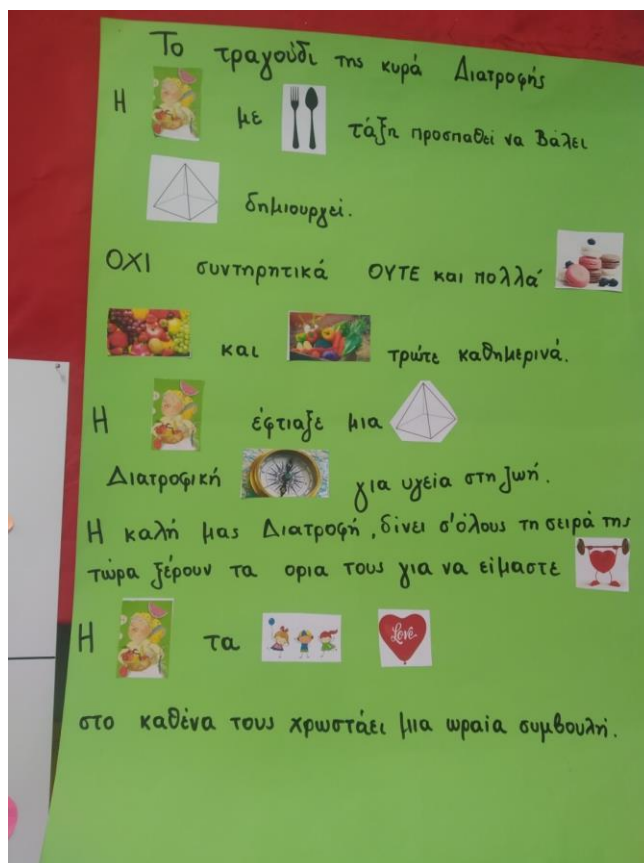 Το τραγούδι της κυρά Διατροφής
Η με τάξη προσπαθεί να βάλει
δημιουργεί.
ΟΧΙ συντηρητικά ΟΥΤΕ και πολλά
και τρώτε καθημερινά.
Η έφτιαξε μια
Διατροφική για υγεία στη ζωή.
Η καλή μας Διατροφή, δίνει σ'όλους τη σειρά της
τώρα ξέρουν τα ορια τους για να είμαστε
Η τα Love
στο καθένα τους χρωστάει μια ωραία συμβουλή.